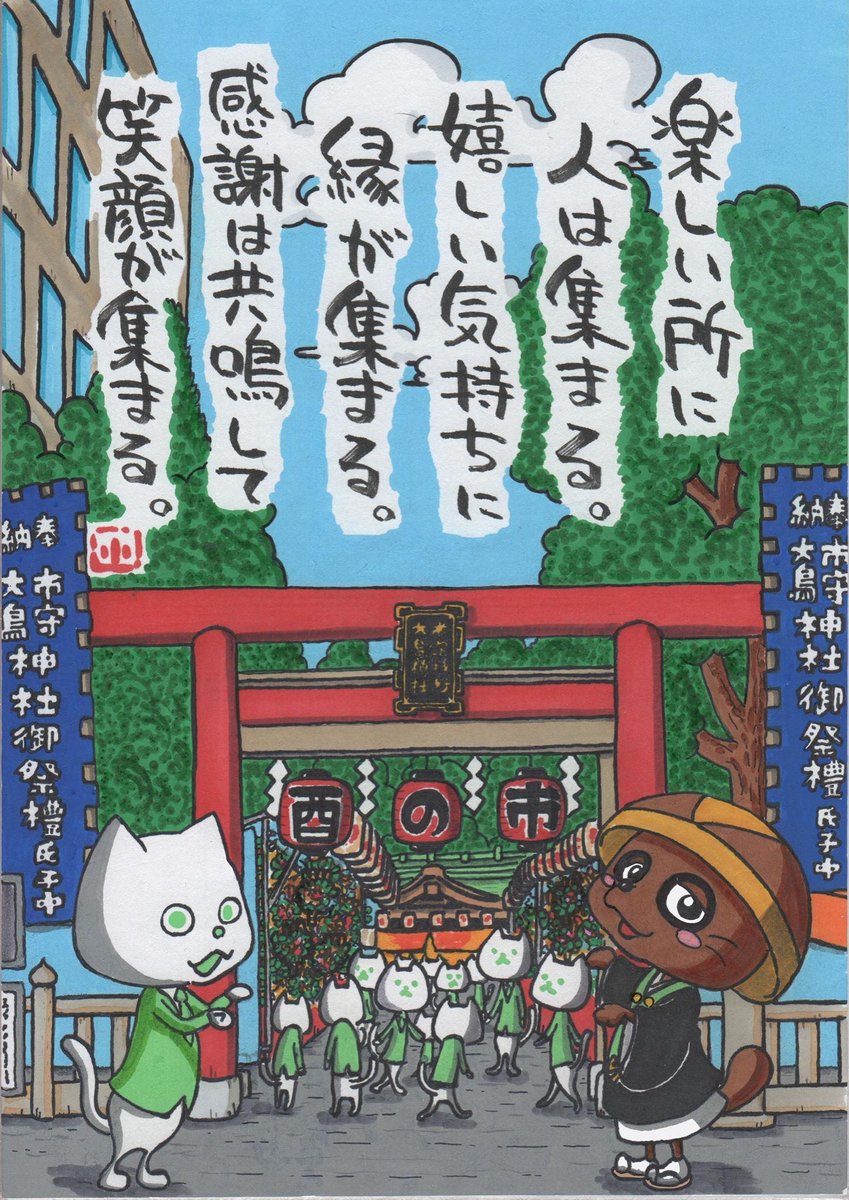 楽しい所に
人は集まる。
嬉しい気持ちに
縁が集まる。
感謝は共鳴して
笑顔が集まる。
奉納
市守神社御祭禮氏子中
大鳥
奉納
市守神社御祭禮氏子中
大鳥
酉の市